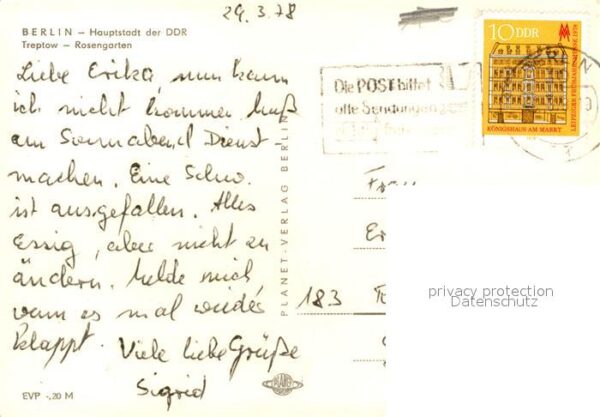 29.3.78
BERLIN – Hauptstadt der DDR
Treptow – Rosengarten
Liebe Erika, nun kann
ich nicht kommen, muß
am Sonnabend Dienst-
machen. Eine Schw.
ist ausgefallen. Alles
Essig, aber nicht zu
ändern. Melde mich
wann es mal wieder
klappt. Viele liebe Grüße
Sigrid
EVP -,20 M
PLANET-VERLAG BERLIN
PLANET
Die POST bittet
alle Sendungen
10 DDR
KÖNIGSHAUS AM MARKT
LEIPZIGER FRÜHJAHRSMESSE 1978
Er
183
privacy protection
Datenschutz